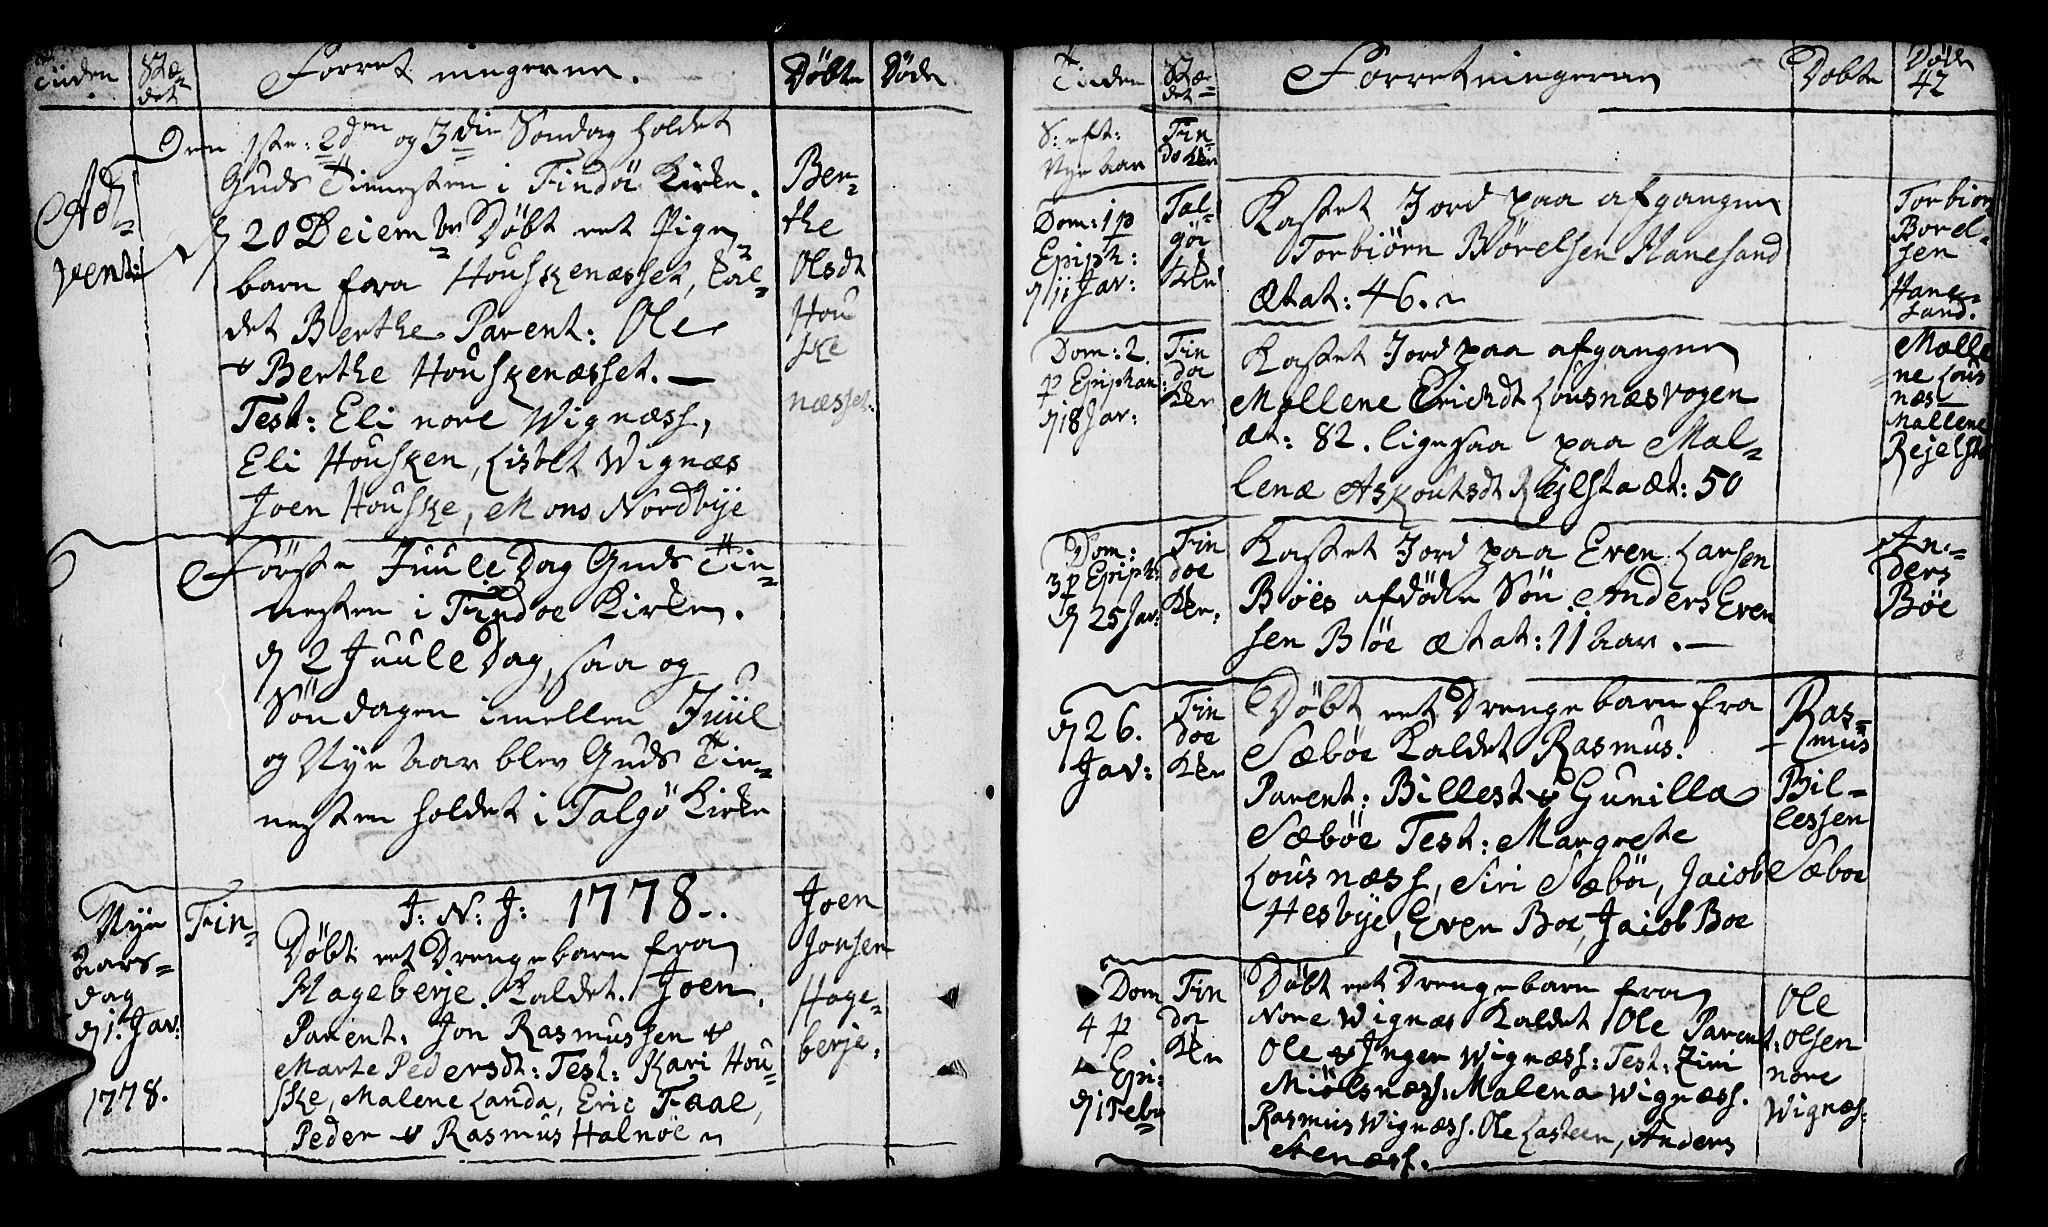 Tiiden Stædet Forretningerne. Døbte Døde
Den 1ste: 2den og 3die Søndag holdet
Advent: Guds Tienesten i Findö Kirke.
d 20 Decembr Døbt eet Pige
barn fra Houskenæsset, kal=
det Berthe Parent: Ole
& Berthe Houskenæsset. —
Test: Eli nore Wignæss,
Eli Housken, Lisbet Wignæs
Joen Houske, Mons Nordbye
Ber=
the
Olsdt
Hou
ske
næsset.
Förste Juule Dag Guds Tie=
nesten i Findoe Kirke.
d 2 Juule Dag, saa og
Söndagen imellem Juul
og Nye Aar blev Guds Tie=
nesten holdet i Talgö Kirke
Nye
Aars=
dag
d 1. Jav:
1778.
Fin=
J: N: J: 1778.
Döbt eet Drengebarn fra
Hageberje kaldet Joen.
Parent. Jon Rasmussen &
Marte Pedersdt: Test: Kari Hou=
ske, Malene Landa, Eric Faae,
Peder & Rasmus Halnöe
Joen
Jonsen
Hage=
berje.
Tiiden Stædet Forretningerne Døbte Døde
42
S: eft:
Nye Aar
Fin=
do Kkn
Dom: 1 p
Epiph:
d 11 Jav:
Tal=
göe
Kkn
Kastet Jord paa afgangne
Torbiörn Børelsen Hanesand
Ætat: 46.
Torbiørn
Borel=
sen
Hane=
sand.
Dom: 2.
p Epiphan:
d 18 Jav:
Fin
doe
Kkn
Kastet Jord paa afgangne
Mallene Erichdt Lousnæsvogen
æt: 82. ligesaa paa Mal=
lenæ Askoutsdt Rejlsta æt: 50
Malle
ne Lous
næs
Mallene
Rejelsta
Dom:
3 p Epiph:
d 25 Jav:
Fin
doe
Kkn:
Kastet Jord paa Even Larsen
Böes afdöde Sön Anders Even
sen Böe Ætat: 11 aar. —
An=
ders
Böe
d 26.
Jav:
Fin
doe
Kkn
Döbt eet Drengebarn fra
Sæböe kaldet Rasmus.
Parent: Billest & Gunilla
Sæböe Test: Margrete
Lousnæss, Siri Sæböe, Jacob
Hesbye, Even Boe, Jacob Boe
Ras=
mus
Bil=
lessen
Sæboe
Dom
4 p
Epi:
d 1 Febr
Fin
doe
Kkn
Døbt eet Drengebarn fra
Nore Wignæs kaldet Ole Parent:
Ole & Inger Wignæss: Test: Ziri
Miölsnæss: Malena Wignæss.
Rasmus Wignæss. Ole Lasteen, Anders
Stenæss.
Ole
Olsen
nore
Wignæs: